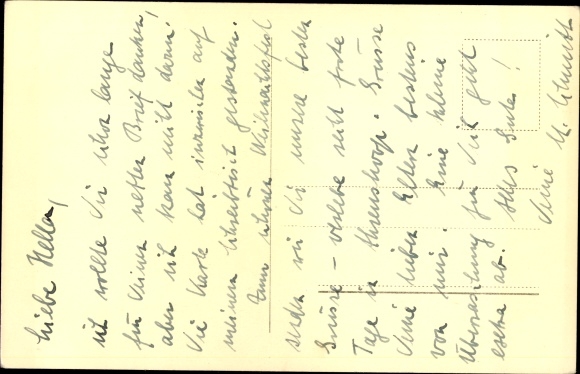 Liebe Hella,
ich wollte Dir schon lange
für Deinen netten Brief danken,
aber ich kam nicht dazu.
Die Karte hat inzwischen auf
meinem Schreibtisch gestanden.
Zum schönen Weihnachtsfest
senden wir Dir unsere besten
Grüsse – verlebe recht frohe
Tage in Ahrenshoop. Grüsse
Deine lieben Eltern bestens
von mir. Eine kleine
Überraschung für Dich geht
extra ab. Alles Gute!
Deine U. Schmidt